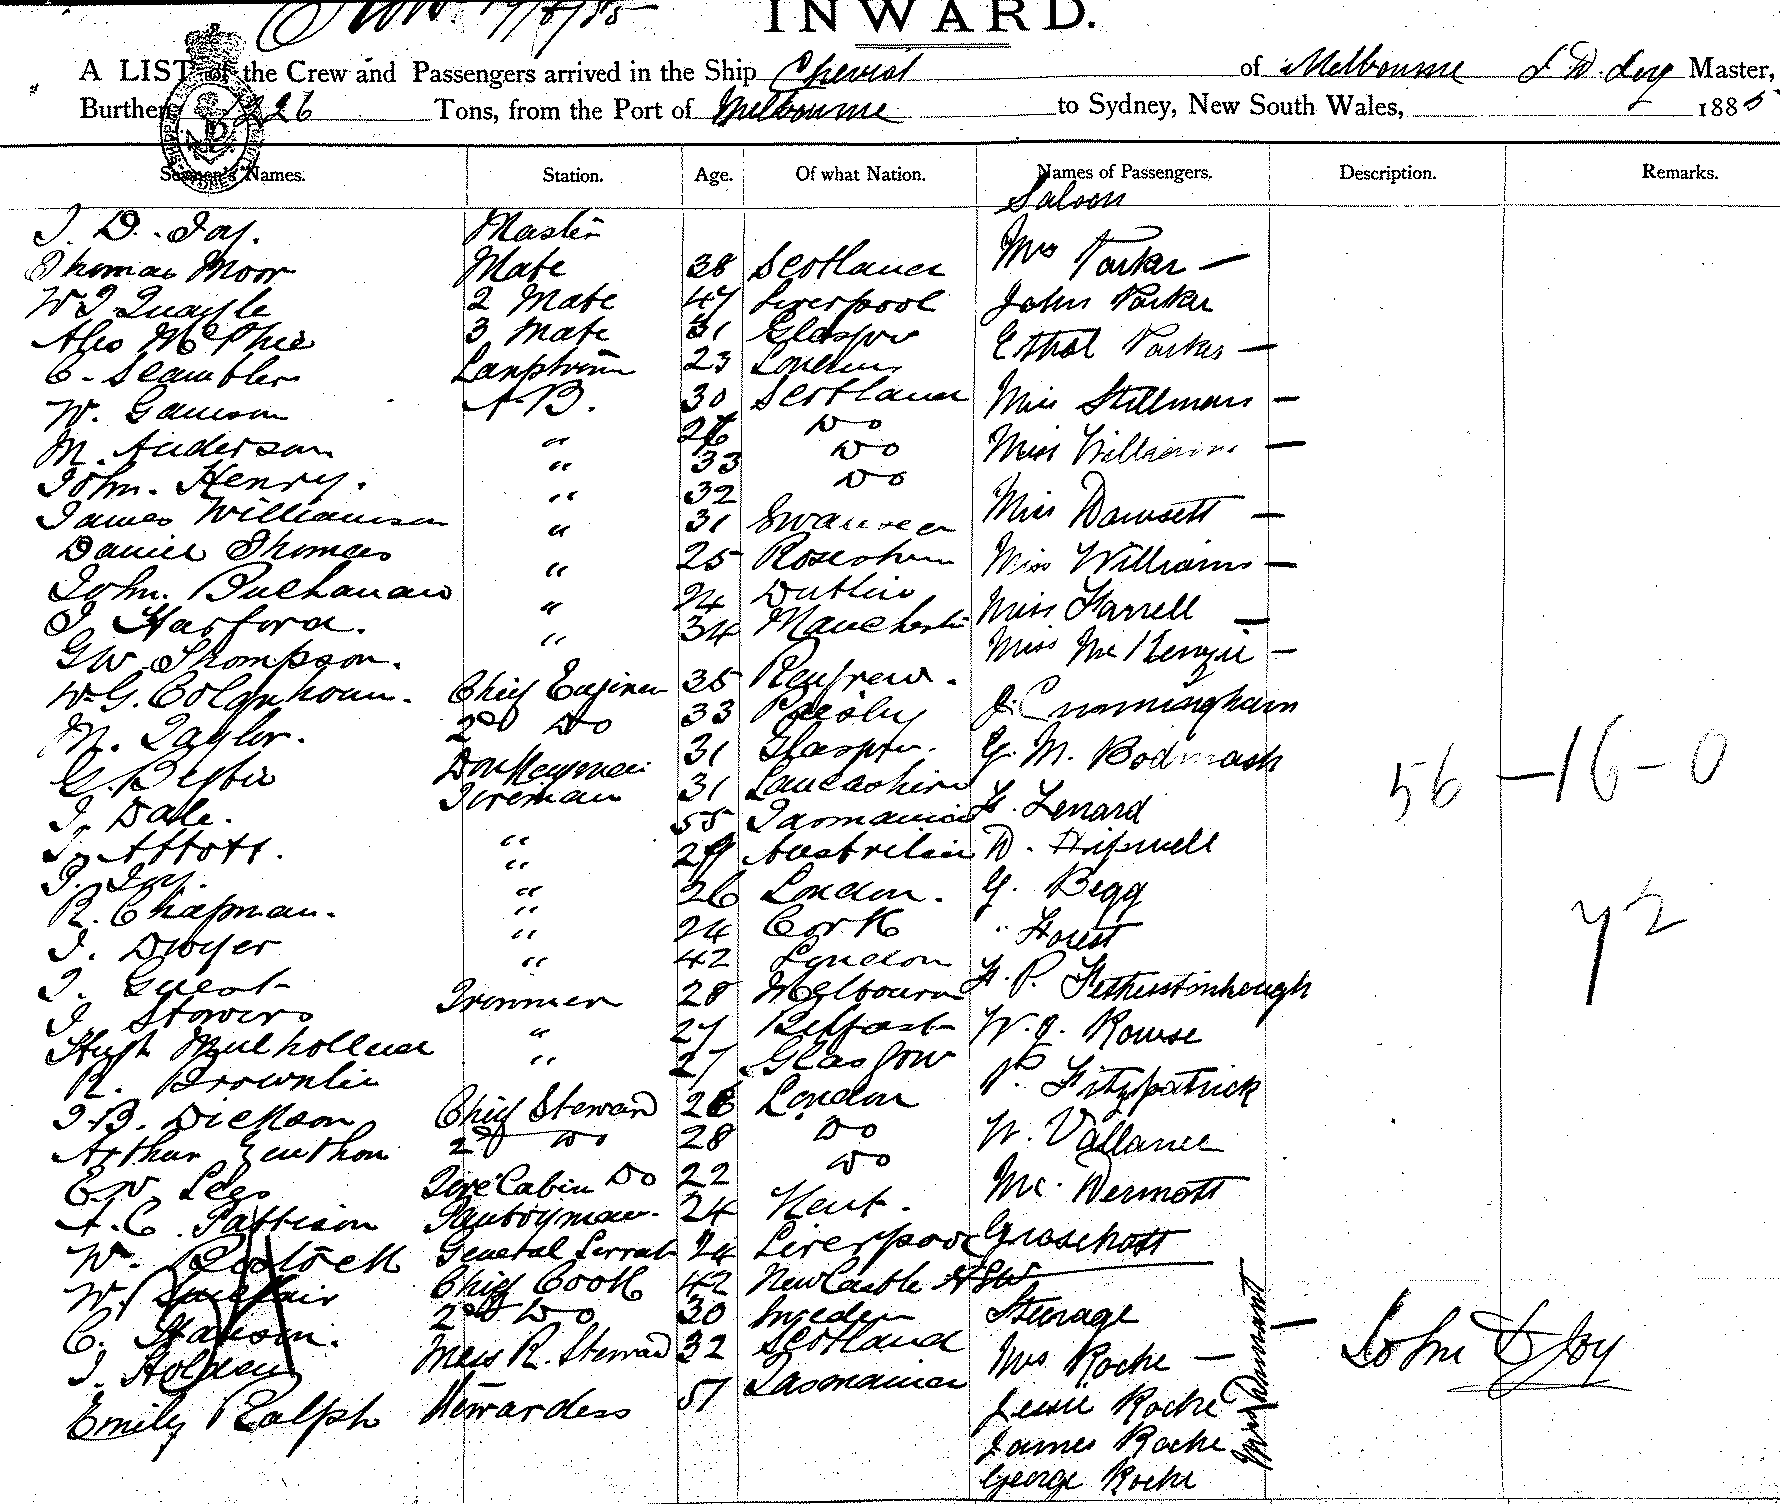 INWARD.
A LIST of the Crew and Passengers arrived in the Ship Cheviot of Melbourne J D Joy Master,
Burthen 1226 Tons, from the Port of Melbourne to Sydney, New South Wales, 1885
Seamen's Names. Station. Age. Of what Nation. Names of Passengers. Description. Remarks.
Saloon
J. D. Joy. Master
Thomas Moor Mate 38 Scotland Mrs Parker —
W J Quayle 2 Mate 47 Liverpool John Parker
Alex McPhie 3 Mate 31 Glasgow Ethel Parker —
C. Scambler Lamptrim 23 London
W. Gamson A.B. 30 Scotland Miss Stillman —
M. Anderson " 26 Do Miss Williams —
John. Henry. " 33 Do
James Williamson " 32 Do Miss Dowsett —
Daniel Thomas " 31 Swansea
John. Buchanan " 25 Miss Williams —
J Harford. " 24 Dublin Miss Farrell —
GW. Thompson. " 34 Manchester Miss McKenzie —
W.G. Colquhoun. Chief Engineer 35 Renfrew. J. Cunningham
M. Taylor. 2nd Do 33 Paisly
G. Donkeyman 31 Glasgow. G. M. Bodmash
J. Dale. Fireman 31 Lancashire F. Lenard
J. Abbott. " 55 Tasmania D. Hipwell
J. Joy. " 29 Australia G. Begg
R. Chapman. " 26 London. " Forest
J. Dwyer " 24 Cork
J. Guest " 42 London F. P. Fetherstonhaugh
J. Stowers Trimmer 28 Melbourne W. J. Rowse
Hugh Mulholland " 27 Belfast P. Fitzpatrick
R. Brownlie " 27 Glasgow
J.B. Dickson Chief Steward 28 London W. Vallance
Arthur 2nd Do 28 Do
E W Lees Fore Cabin Do 22 Do Mc. Dermott
A. C. Pattison Pantryman. 24 Kent.
W. General Servant 24 Liverpool Groschatt
W. Sinclair Chief Cook 42 NewCastle NSW
C. Hanson. 2nd Do 30 Sweden Steerage
J. Holden Mess R. Steward 32 Scotland Mrs Roche —
Emily Ralph Stewardess 51 Tasmania Jessie Roche
James Roche
George Roche
56 — 16 — 0
72
John D Joy